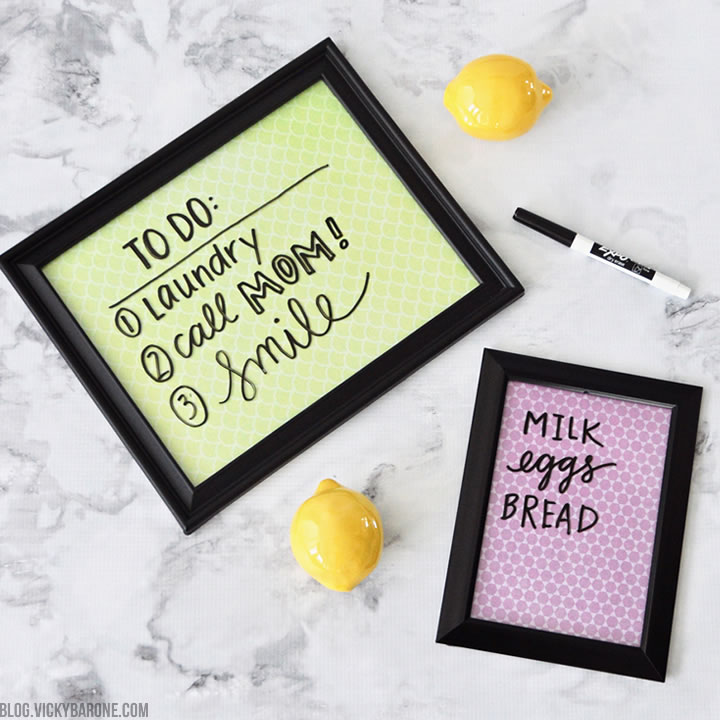 TO DO:
① Laundry
② call MOM!
③ smile
EXPO
MILK
eggs
BREAD
BLOG.VICKYBARONE.COM